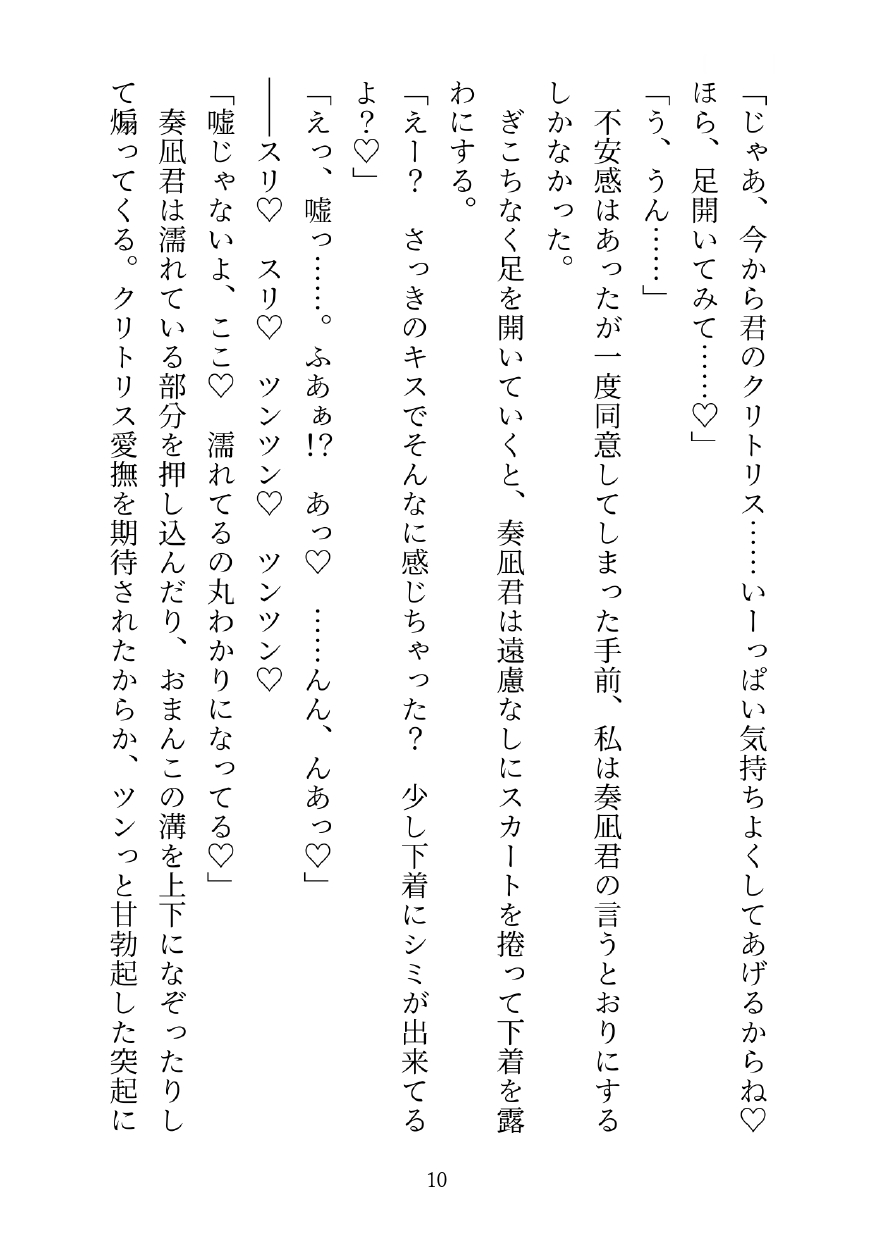 「じゃあ、今から君のクリトリス……いーっぱい気持ちよくしてあげるからね♡
ほら、足開いてみて……♡」
「う、うん……」
　不安感はあったが一度同意してしまった手前、私は奏凪君の言うとおりにする
しかなかった。
　ぎこちなく足を開いていくと、奏凪君は遠慮なしにスカートを捲って下着を露
わにする。
「えー？　さっきのキスでそんなに感じちゃった？　少し下着にシミが出来てる
よ？♡」
「えっ、嘘っ……。ふあぁ!?　あっ♡　……んん、んあっ♡」
――スリ♡　スリ♡　ツンツン♡　ツンツン♡
「嘘じゃないよ、ここ♡　濡れてるの丸わかりになってる♡」
　奏凪君は濡れている部分を押し込んだり、おまんこの溝を上下になぞったりし
て煽ってくる。クリトリス愛撫を期待されたからか、ツンっと甘勃起した突起に
10